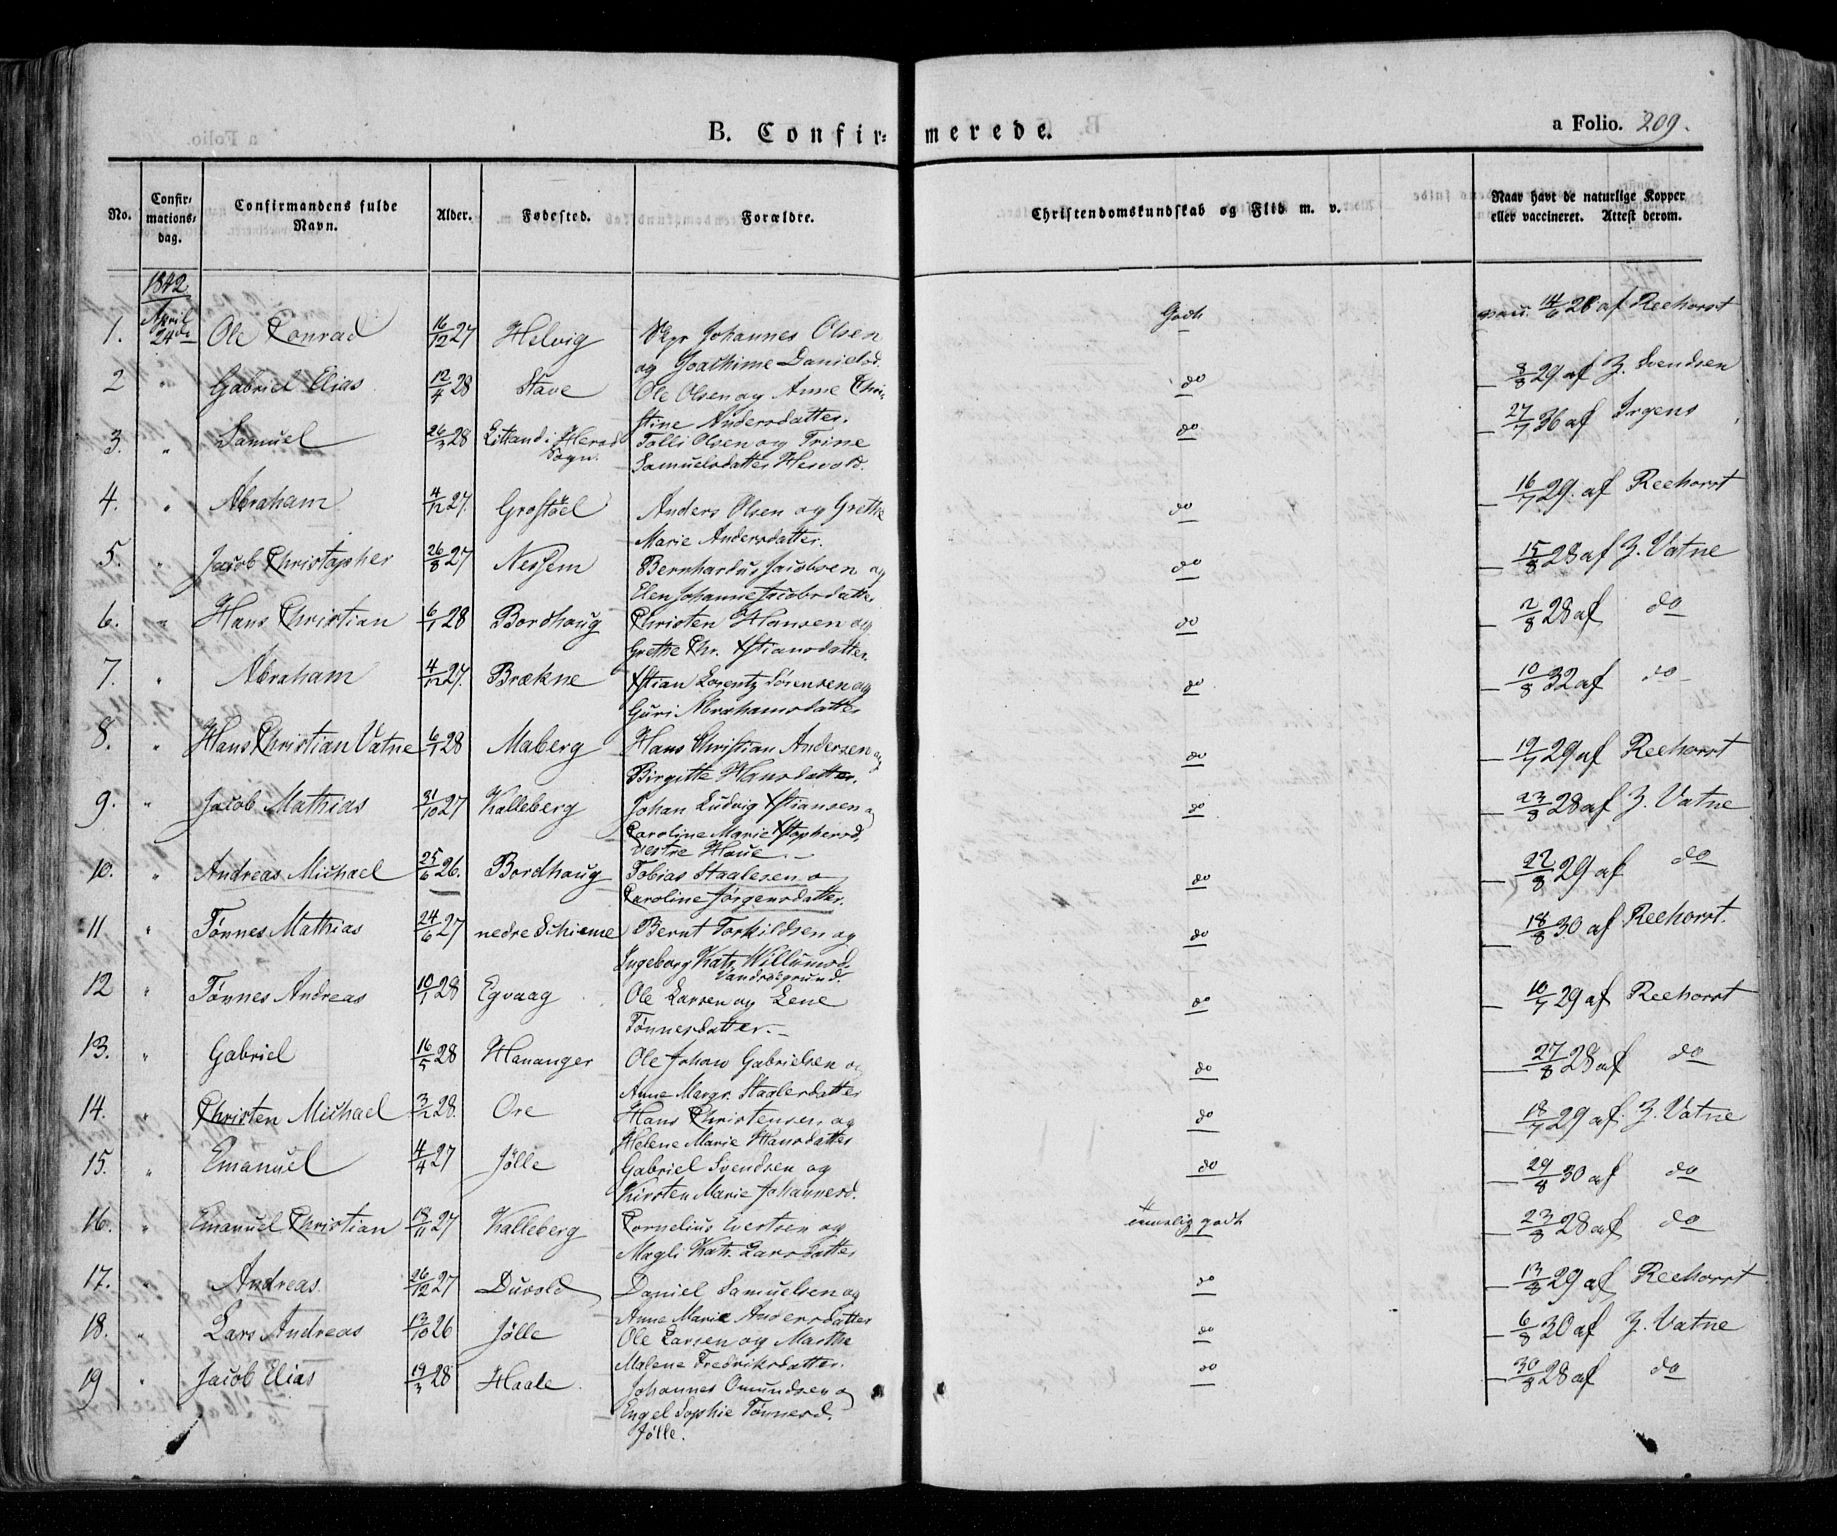 B. Confirmerede.
a Folio. 209.
No. Confirmations-dag. Confirmandens fulde Navn. Alder. Fødested. Forældre. Christendomskundskab og Flid m. v. Naar havt de naturlige Kopper eller vaccineret. Attest derom.
1842
1. April 24de Ole Conrad 16/12 27 Helvig Johannes Olsen Godt 14/6 28 af Reehorst
og Joachime Danielsd.
2 " Gabriel Elias 12/4 28 Stave Ole Olsen og Anne Chri- do 8/8 29 af Z. Svendsen
stine Andersdatter.
3. " Samuel 26/3 28 Eitland i Herad Sogn. Tolli Olsen og Trine do 27/7 36 af Irgens
Samuelsdatter Hervold.
4. " Abraham 4/12 27. Grostøel Anders Olsen og Grethe do 16/7 29. af Reehorst
Marie Andersdatter.
5. " Jacob Christopher 26/8 27 Nessem Bernhardus Jacobsen og do 15/8 28 af Z. Vatne
Elen Johanne Jacobsdatter
6. " Hans Christian 6/1 28 Bordhaug Christen Hansen og do 2/8 28 af do
Grethe Chr. Xstiansdatter.
7. " Abraham 4/12 27. Brækne Xstian Lorentz Sørensen og do 10/8 32 af do
Guri Abrahamsdatter
8. " Hans Christian Vatne 6/1 28 Maberg Hans Christian Andersen og do 19/7 29 af Reehorst
Birgitte Hansdatter.
9. " Jacob Mathias 31/10 27 Kalleberg Johan Ludvig Xstiansen o do 23/8 28 af Z. Vatne
Caroline Marie Xstophersd.
vestre Haue.
10. " Andreas Michael 25/6 26. Bordhaug Tobias Staalesen o do 22/8 29 af do
Caroline Jørgensdatter.
11 " Tønnes Mathias 24/6 27 nedre Schieme Bernt Torkildsen og do 18/8 30 af Reehorst.
Ingeborg Katr. Willumsd.
Vandrøgrund.
12 " Tønnes Andreas 10/1 28 Egvaag Ole Larsen og Lene do 10/7 29 af Reehorst
Tønnesdatter.
13. " Gabriel 16/5 28 Hananger Ole Johan Gabrielsen og do 27/8 28 af do
Anne Margr. Staalesdatter
14. " Christen Michael 3/2 28. Ore Hans Christensen, og do 18/7 29 af Z. Vatne
Helene Marie Hansdatter
15. " Emanuel 4/4 27 Jølle Gabriel Svendsen og do 29/8 30 af do
Kirsten Marie Johannesd.
16. " Emanuel Christian 18/11 27 Kalleberg Cornelius Evertsen og temmelig godt 23/8 28 af do
Magli Katr. Larsdatter
17. " Andreas 26/12 27 Duvold Daniel Samuelsen og do 13/8 29 af Reehorst
Anne Marie Andersdatter
18. " Lars Andreas 13/10 26 Jølle Ole Larsen og Martha do 6/8 30 af Z. Vatne
Malene Fredriksdatter.
19 " Jacob Elias 19/3 28 Haale Johannes Omundsen o do 30/8 28 af do
Engel Sophie Tønnesd.
Jølle.